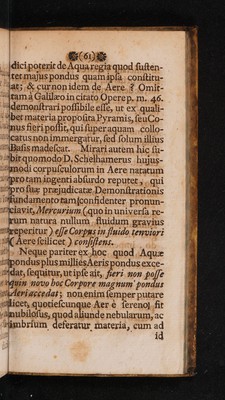 (61)
dici poterit de Aqua regia quod susten-
tet majus pondus quam ipsa constitu-
at; & cur non idem de Aere ? Omit-
tam à Galilæo in citato Opere p. m. 46.
demonstrari possibile esse, ut ex quali-
bet materia proposita Pyramis, seu Co-
nus fieri possit, qui super aquam collo-
catus non immergatur, sed solum illius
Basis madescat. Mirari autem hic su-
bit quomodo D. Schelhamerus hujus-
modi corpusculorum in Aere natatum
pro tam ingenti absurdo reputet, qui
pro suæ præjudicatæ Demonstrationis
fundamento tam confidenter pronun-
ciavit, Mercurium (quo in universa re-
rum natura nullum fluidum gravius
reperitur) esse Corpus in fluido tenuiori
(Aere scilicet) consistens.
Neque pariter ex hoc quod Aquæ
pondus plus millies Aeris pondus exce-
dat, sequitur, ut ipse ait, fieri non posse
quin novo hoc Corpore magnum pondus
Aeri accedat; non enim semper putare
licet, quotiescunque Aer è sereno fit
nubilosus, quod aliunde nebularum, ac
imbrium deferatur materia, cum ad
id